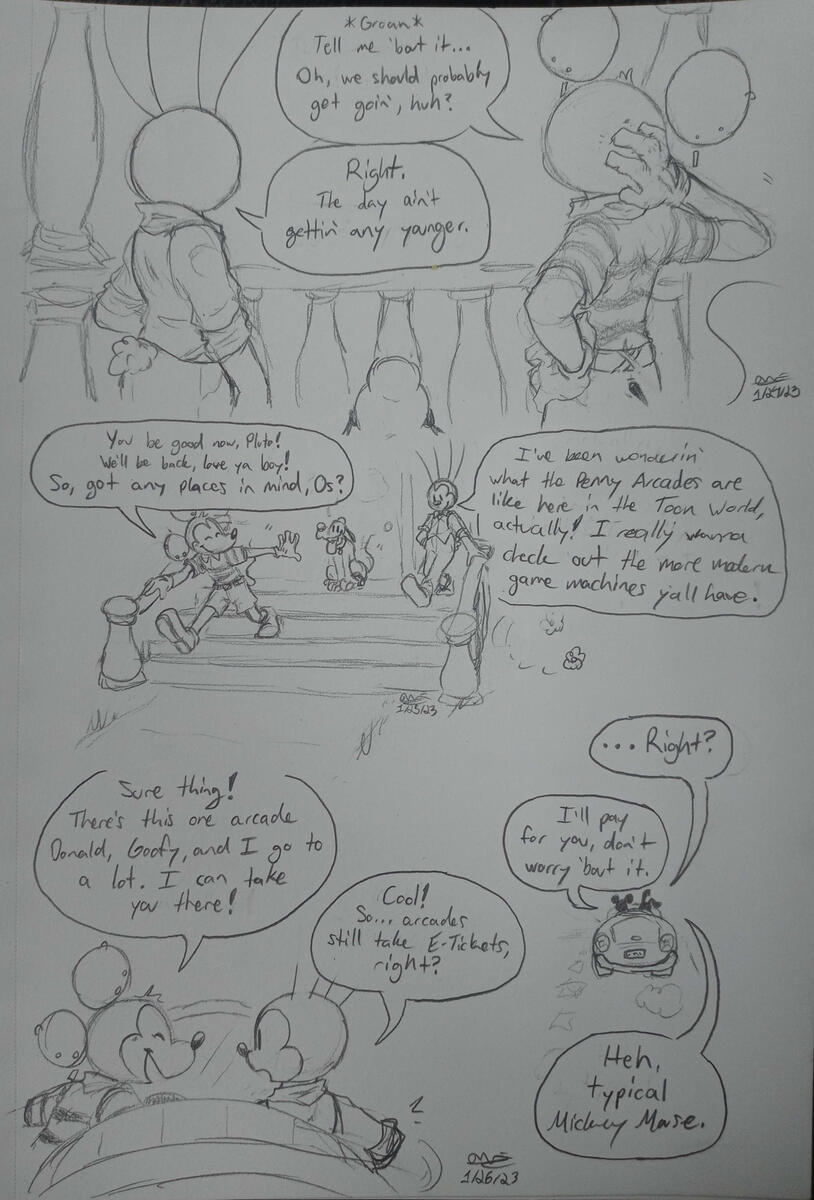 *Groan*
Tell me 'bout it...
Oh, we should probably
get goin', huh?
Right.
The day ain't
gettin' any younger.
1/24/23
You be good now, Pluto!
We'll be back, love ya boy!
So, got any places in mind, Os?
I've been wonderin'
what the Penny Arcades are
like here in the Toon World,
actually! I really wanna
check out the more modern
game machines y'all have.
1/25/23
Sure thing!
There's this one arcade
Donald, Goofy, and I go to
a lot. I can take
you there!
Cool!
So... arcades
still take E-Tickets,
right?
... Right?
I'll pay
for you, don't
worry 'bout it.
Heh,
typical
Mickey Mouse.
1/26/23